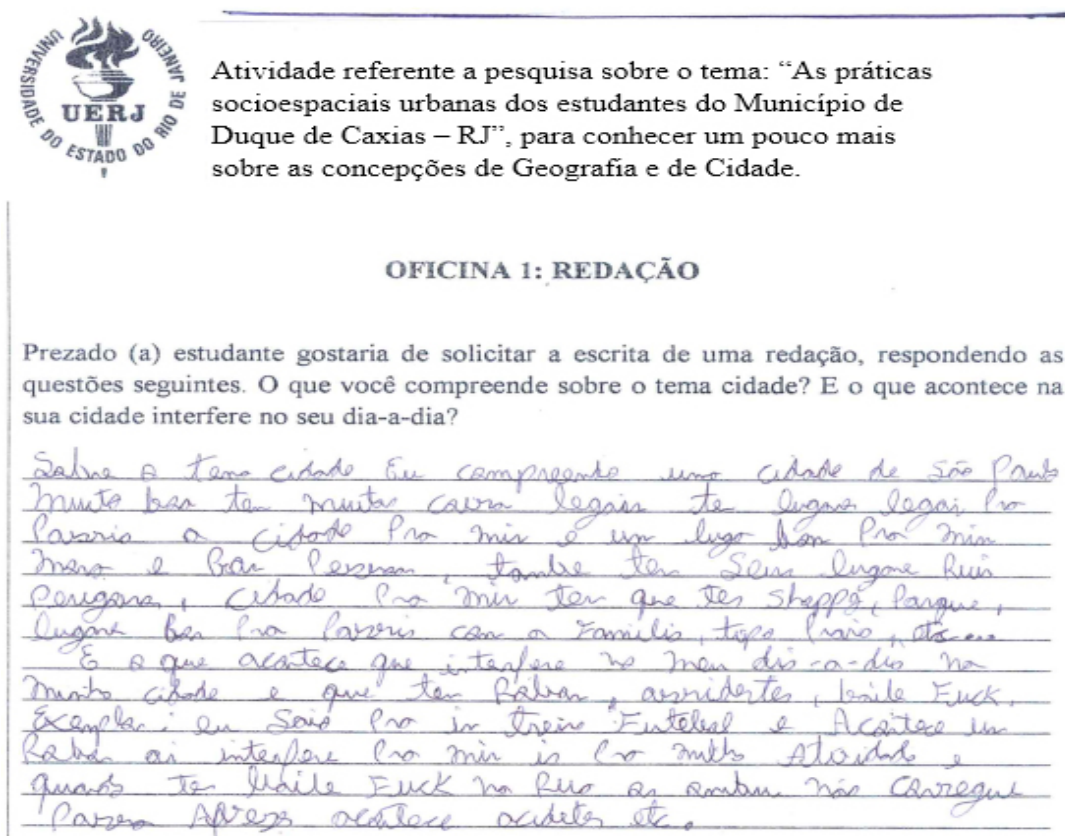 UNIVERSIDADE DO ESTADO DO RIO DE JANEIRO
UERJ
Atividade referente a pesquisa sobre o tema: “As práticas
socioespaciais urbanas dos estudantes do Município de
Duque de Caxias – RJ”, para conhecer um pouco mais
sobre as concepções de Geografia e de Cidade.
OFICINA 1: REDAÇÃO
Prezado (a) estudante gostaria de solicitar a escrita de uma redação, respondendo as
questões seguintes. O que você compreende sobre o tema cidade? E o que acontece na
sua cidade interfere no seu dia-a-dia?
Sobre o tema cidade Eu compreendo uma cidade de São Paulo
muito ten muitas legais te lugares legais Pro
a cidade Pra min é um lugo bom Pra min
e , tambe ten Seus lugare Ruin
, cidade Pra min ten que ter , Parque,
lugare Pra con a Familia, tipo Praia, etc...
E o que acontece que interfere no meu dia-a-dia na
minha cidade e que ten , , baile Fuck.
Exemplo: eu Saio Pro treino e Acontece un
ai interfere Pro min ir Pra minha Atividade e
quando ten baile Fuck na Rua as não
acontece etc.